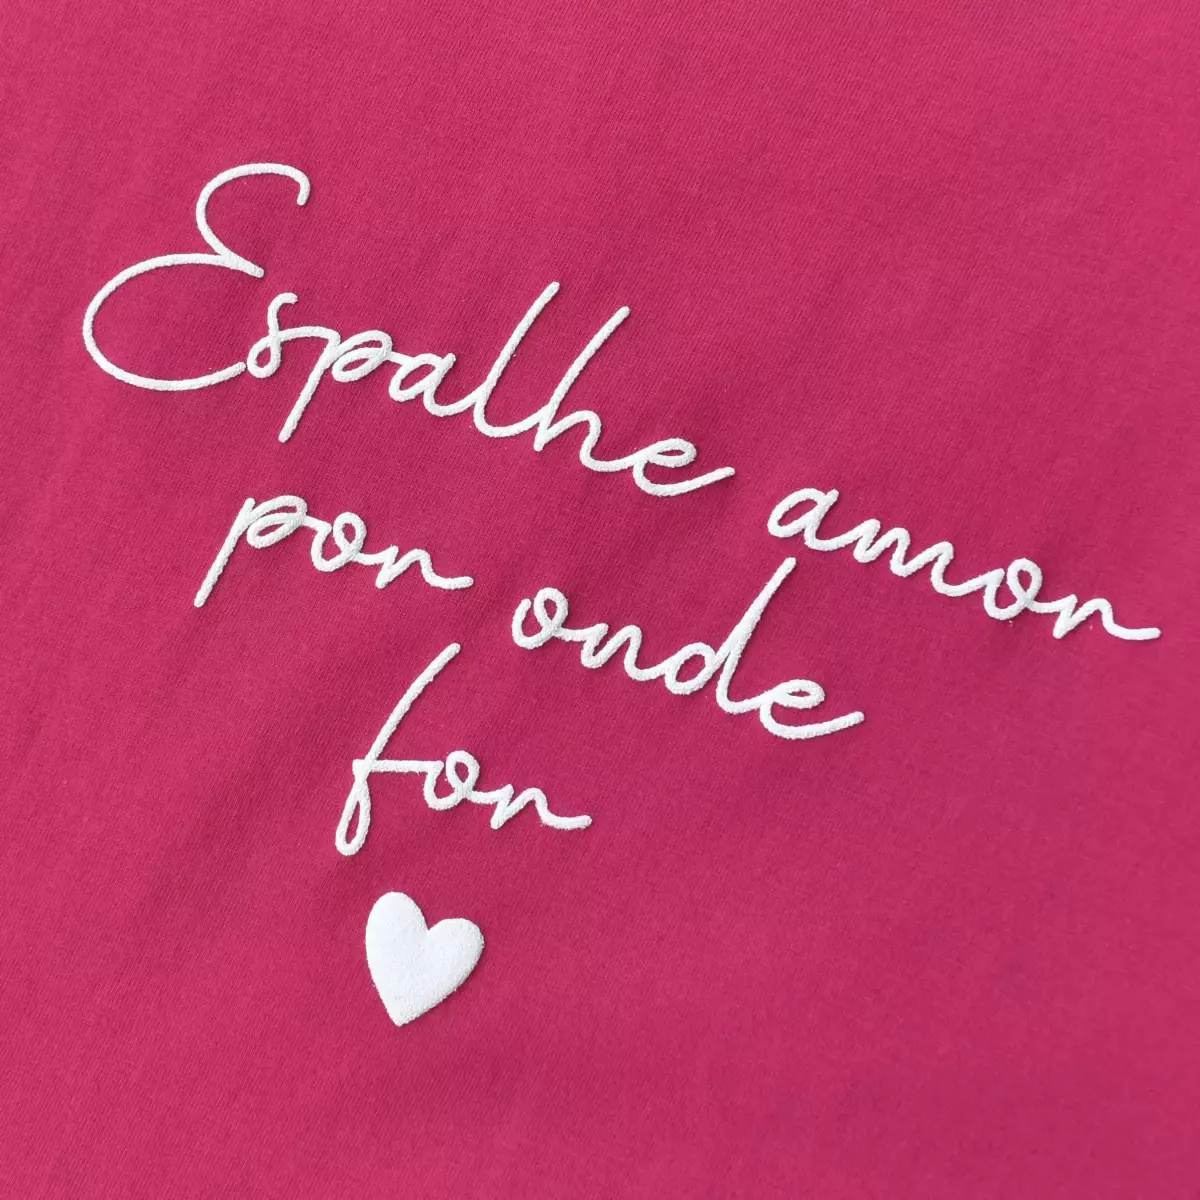 Espalhe amor
por onde
for